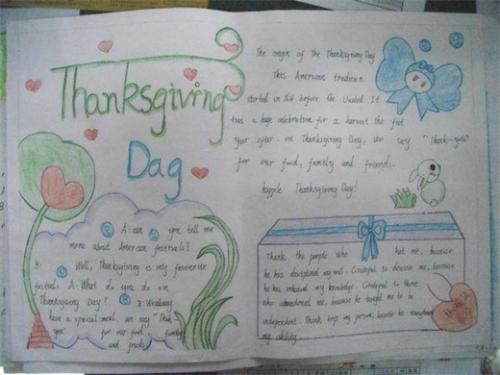 Thanksgiving
Dag
The origin of The Thanksgiving Day
This American tradition
started in before the United. It
was a huge celebration for a harvest the feet
year after. On Thanksgiving Day, we say "Thank-you"
for our food, family and friends.
happle Thanksgiving Day!
A: can you tell me
more about American festivals?
B: Well, Thanksgiving is my favourite
festival. A: What do you do on
Thanksgiving Day? B: We always
have a special meal. we say "Thank
you" for our food, family
and friends.
Thank the people who hat me, because
he has disciplined my will. Grateful to deceive me, because
he has enhanced my knowledge. Grateful to those
who abandoned me, because he taught me to be
independent. Thank my person, because he
my ability.